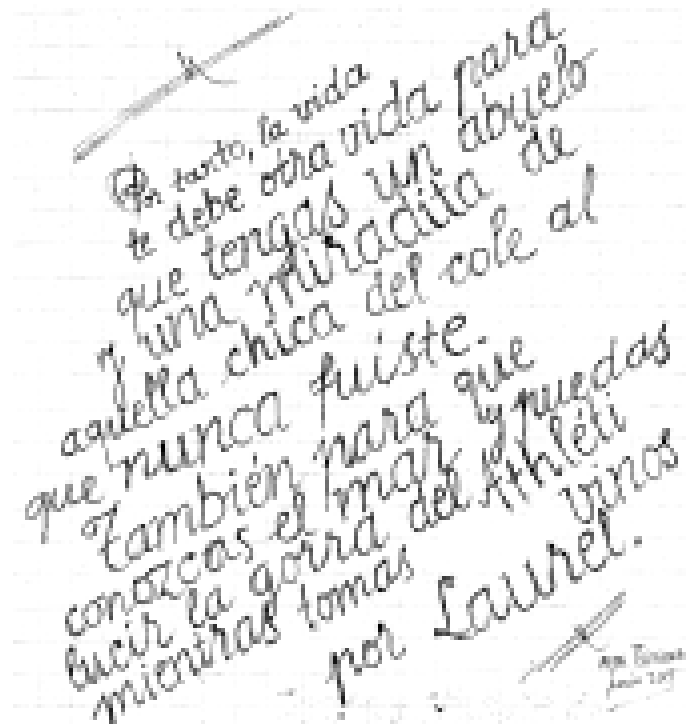 En tanto, la vida
te debe otra vida para
que tengas un abuelo
y una miradita de
aquella chica del cole al
que nunca fuiste.
También para que
conozcas el mar y puedas
lucir la gorra del Athléti
mientras tomas vinos
por Laurel.